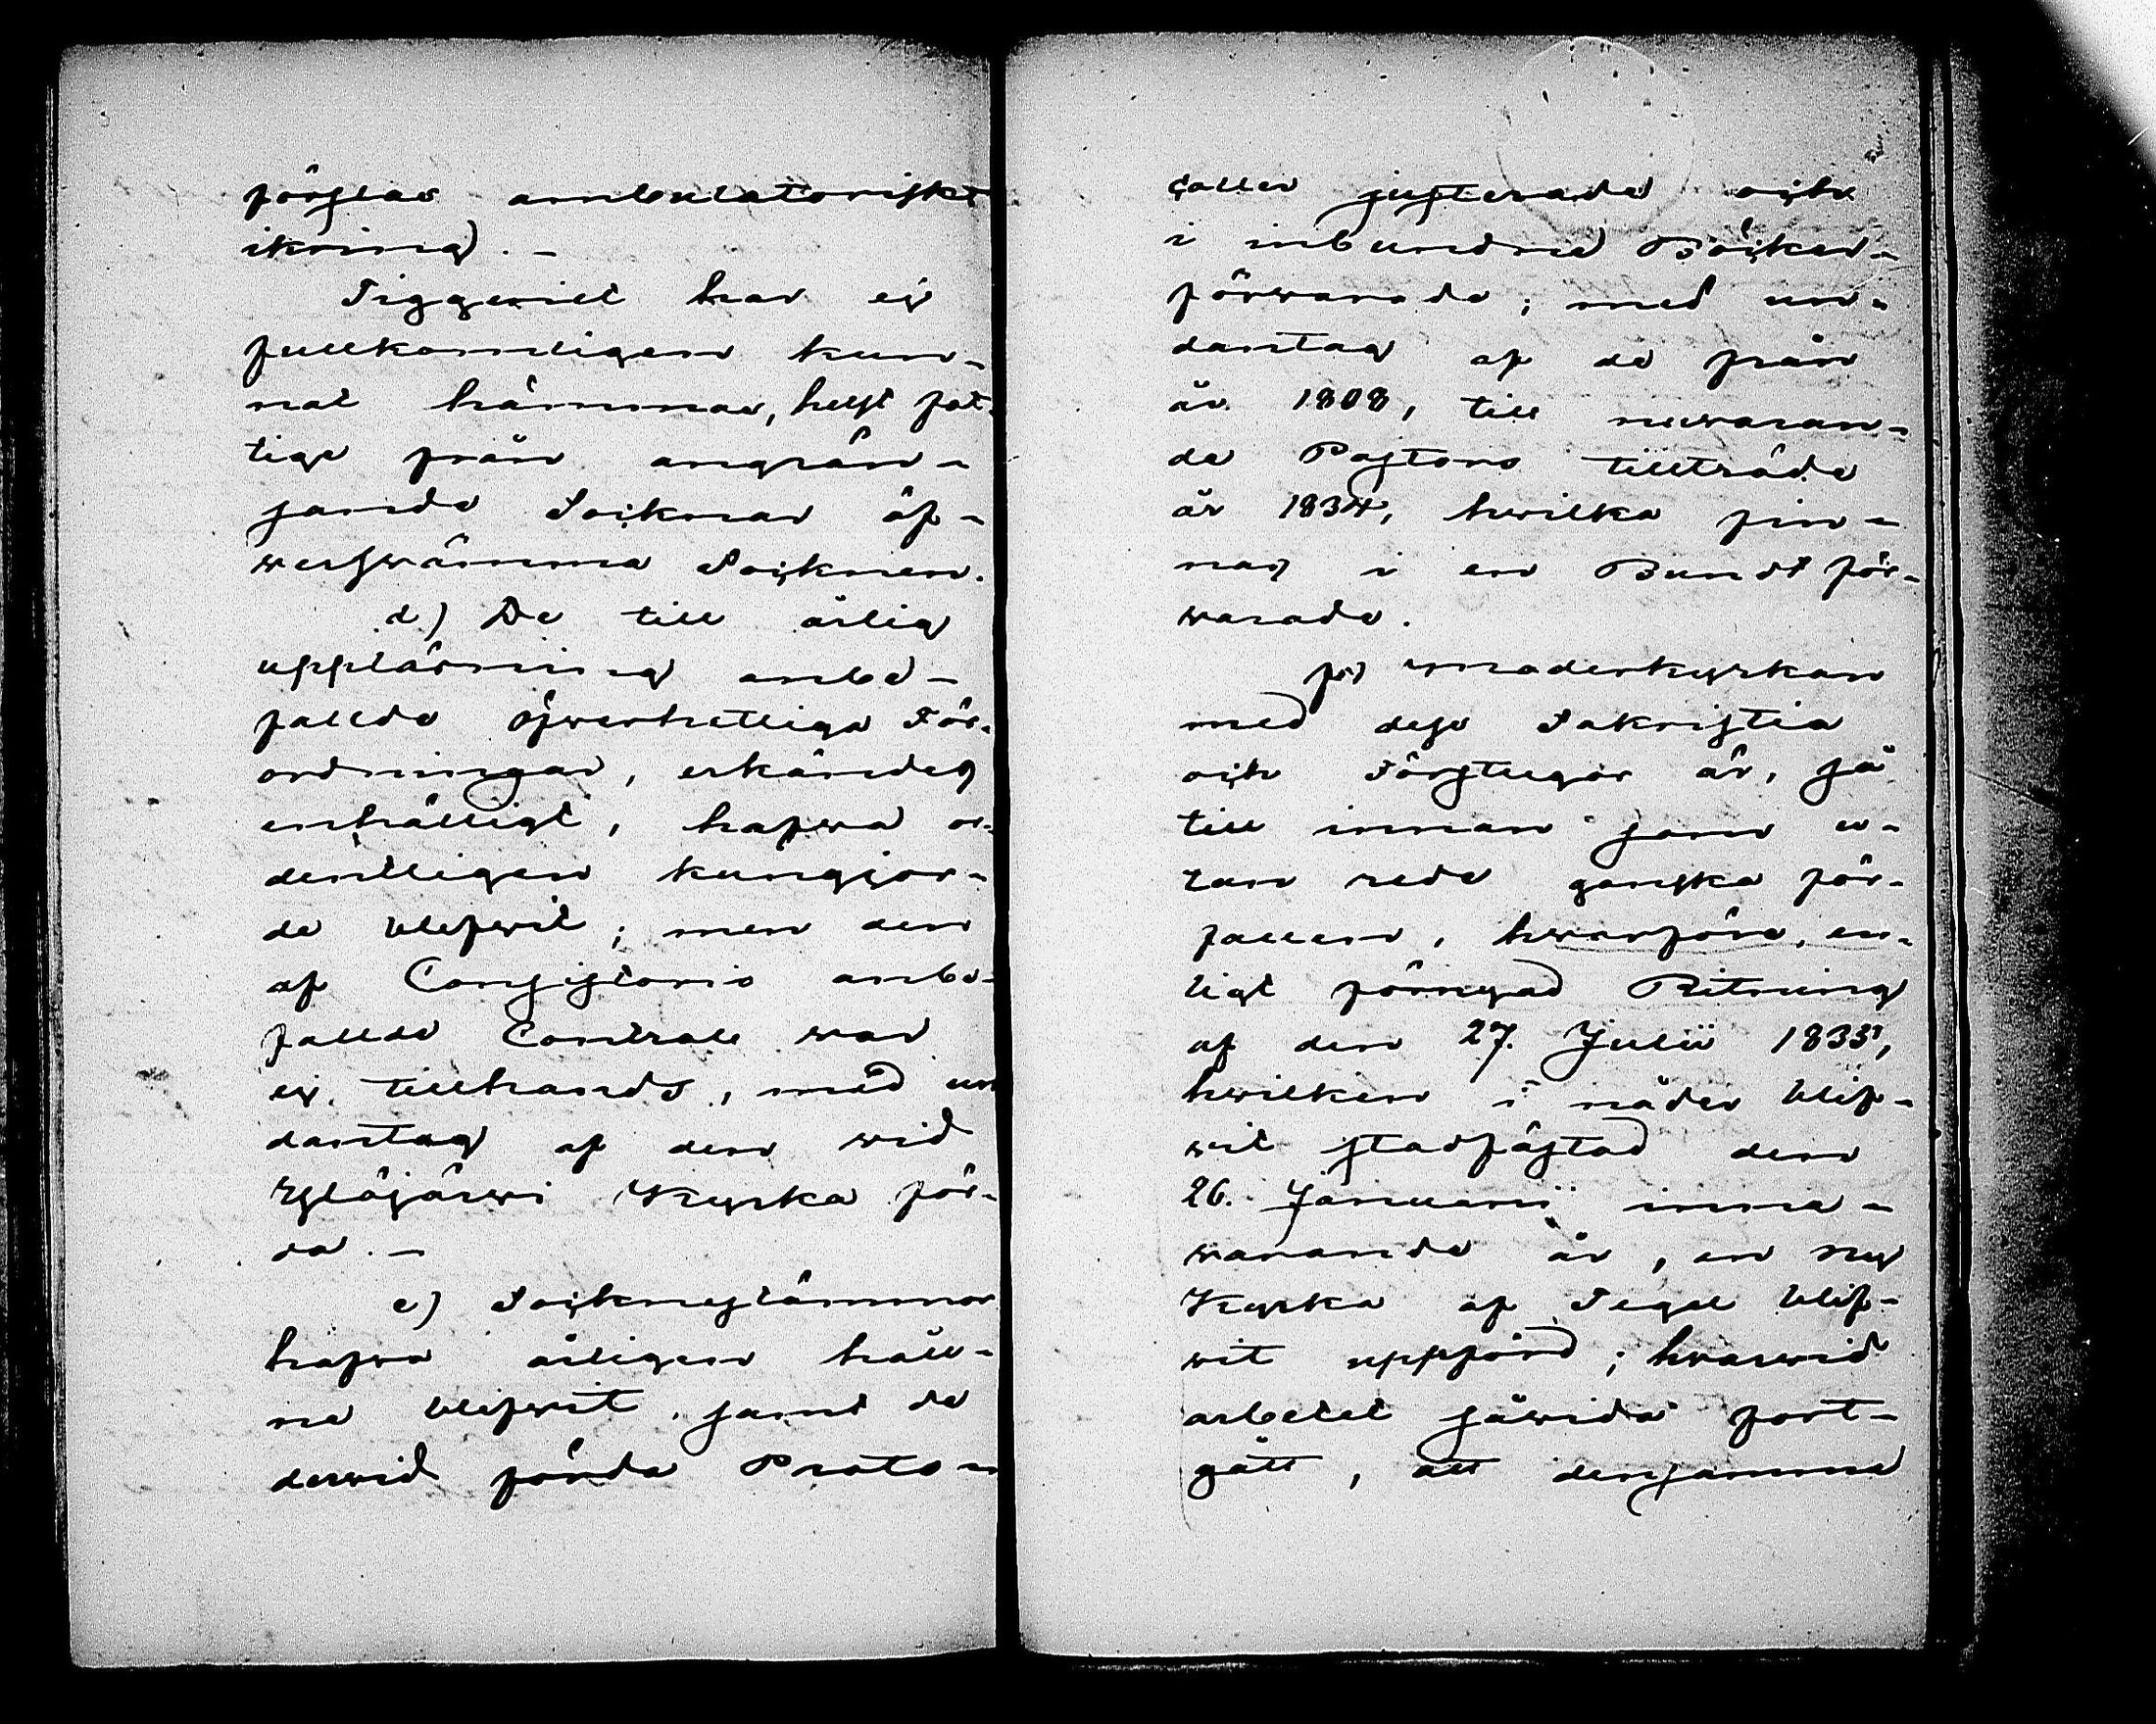 förslas ambulatoriskt
ikring). –
Tiggeriet har ej
fullkomligen kun-
nat hämmas, helst fat-
tige från angrän-
sande Socknar öf-
wersvämma Socknen.
d) De till årlig
uppläsning anbe-
fallde Öfwerhetliga För-
ordningar, erkändes
enhälligt, hafwa or-
dentligen kungjor-
de blifwit; men den
af Consistorio anbe-
fallde Controll war
ej tillhands, med un
dantag af den wid
Ylöjärwi Kyrka för-
da. –
e) Socknestämmor
hafwa årligen håll-
na blifwit, samt de
derwid förda Proto-
coller justerade och
i inbundne Böcker
förwarade; med un-
dantag af de från
år 1808, till nuwaran-
de Pastors tillträde
år 1834, hwilka fin-
nas i en Bundt för-
warade.
f) Moderkyrkan
med dess Sakristia
och Förstugor är, så
till innan som u-
tan rede ganska för-
fallen, hwarföre, en-
ligt förnyad Ritning
af den 27. Julii 1835,
hwilken i nåder blif-
wit stadfästad den
26. Januarii inne-
warande år, en ny
Kyrka af Tegel blif-
wit uppförd; hwarwid
arbetet såwida fort-
gått, att densamme